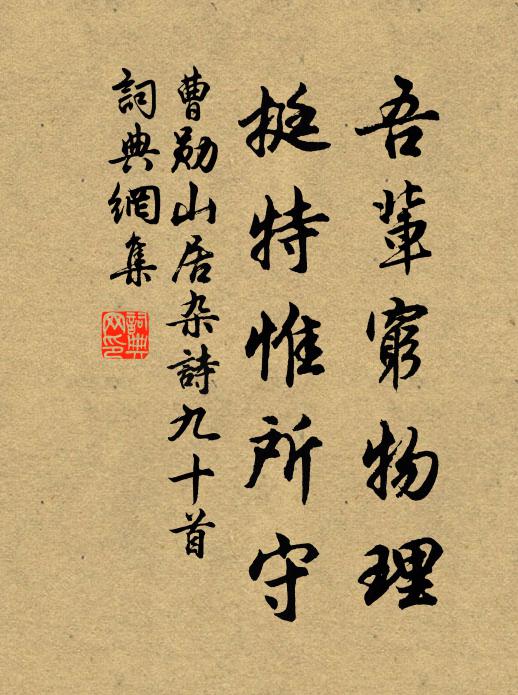 吾輩窮物理
挺特惟所守
曹勛山居杂詩九十首
詞典網集
詞典网印